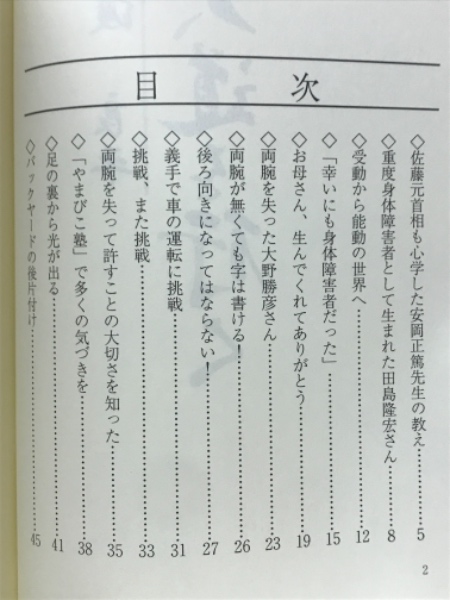 目次
◇佐藤元首相も心学した安岡正篤先生の教え……5
◇重度身体障害者として生まれた田島隆宏さん……8
◇受動から能動の世界へ……12
◇「幸いにも身体障害者だった」……15
◇お母さん、生んでくれてありがとう……19
◇両腕を失った大野勝彦さん……23
◇両腕が無くても字は書ける！……26
◇後ろ向きになってはならない！……27
◇義手で車の運転に挑戦……31
◇挑戦、また挑戦……33
◇両腕を失って許すことの大切さを知った……35
◇「やまびこ塾」で多くの気づきを……38
◇足の裏から光が出る……41
◇バックヤードの後片付け……45
2